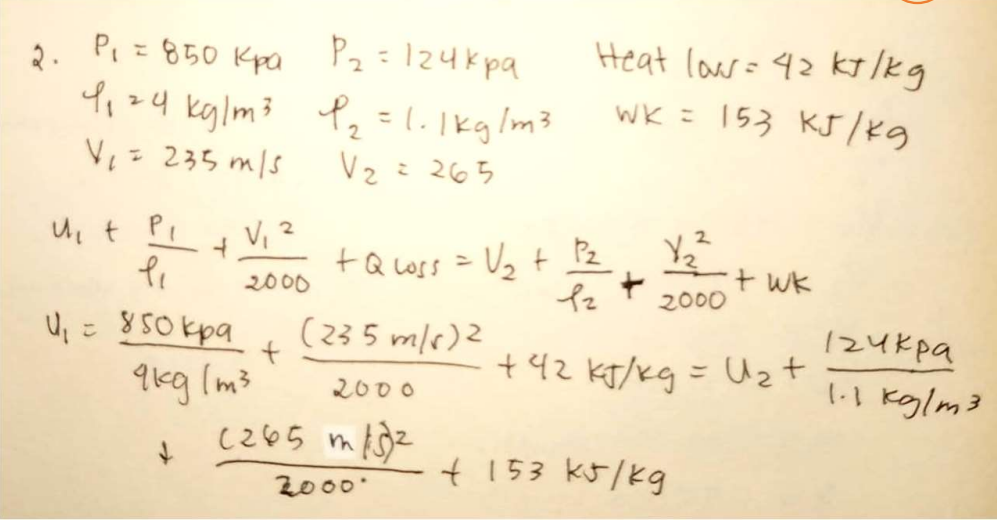 2. P₁ = 850 Kpa P₂ = 124 kpa Heat loss = 42 kJ/kg
ρ₁ = 4 kg/m³ ρ₂ = 1.1 kg/m³ WK = 153 KJ/kg
V₁ = 235 m/s V₂ = 265
u₁ + P₁/ρ₁ + V₁²/2000 + Q loss = V₂ + P₂/ρ₂ + V₂²/2000 + WK
u₁ = 850 kpa/9kg/m³ + (235 m/s)2/2000 + 42 kJ/kg = U₂ + 124Kpa/1.1 kg/m³
+ (265 m/s)2/2000 + 153 KJ/kg